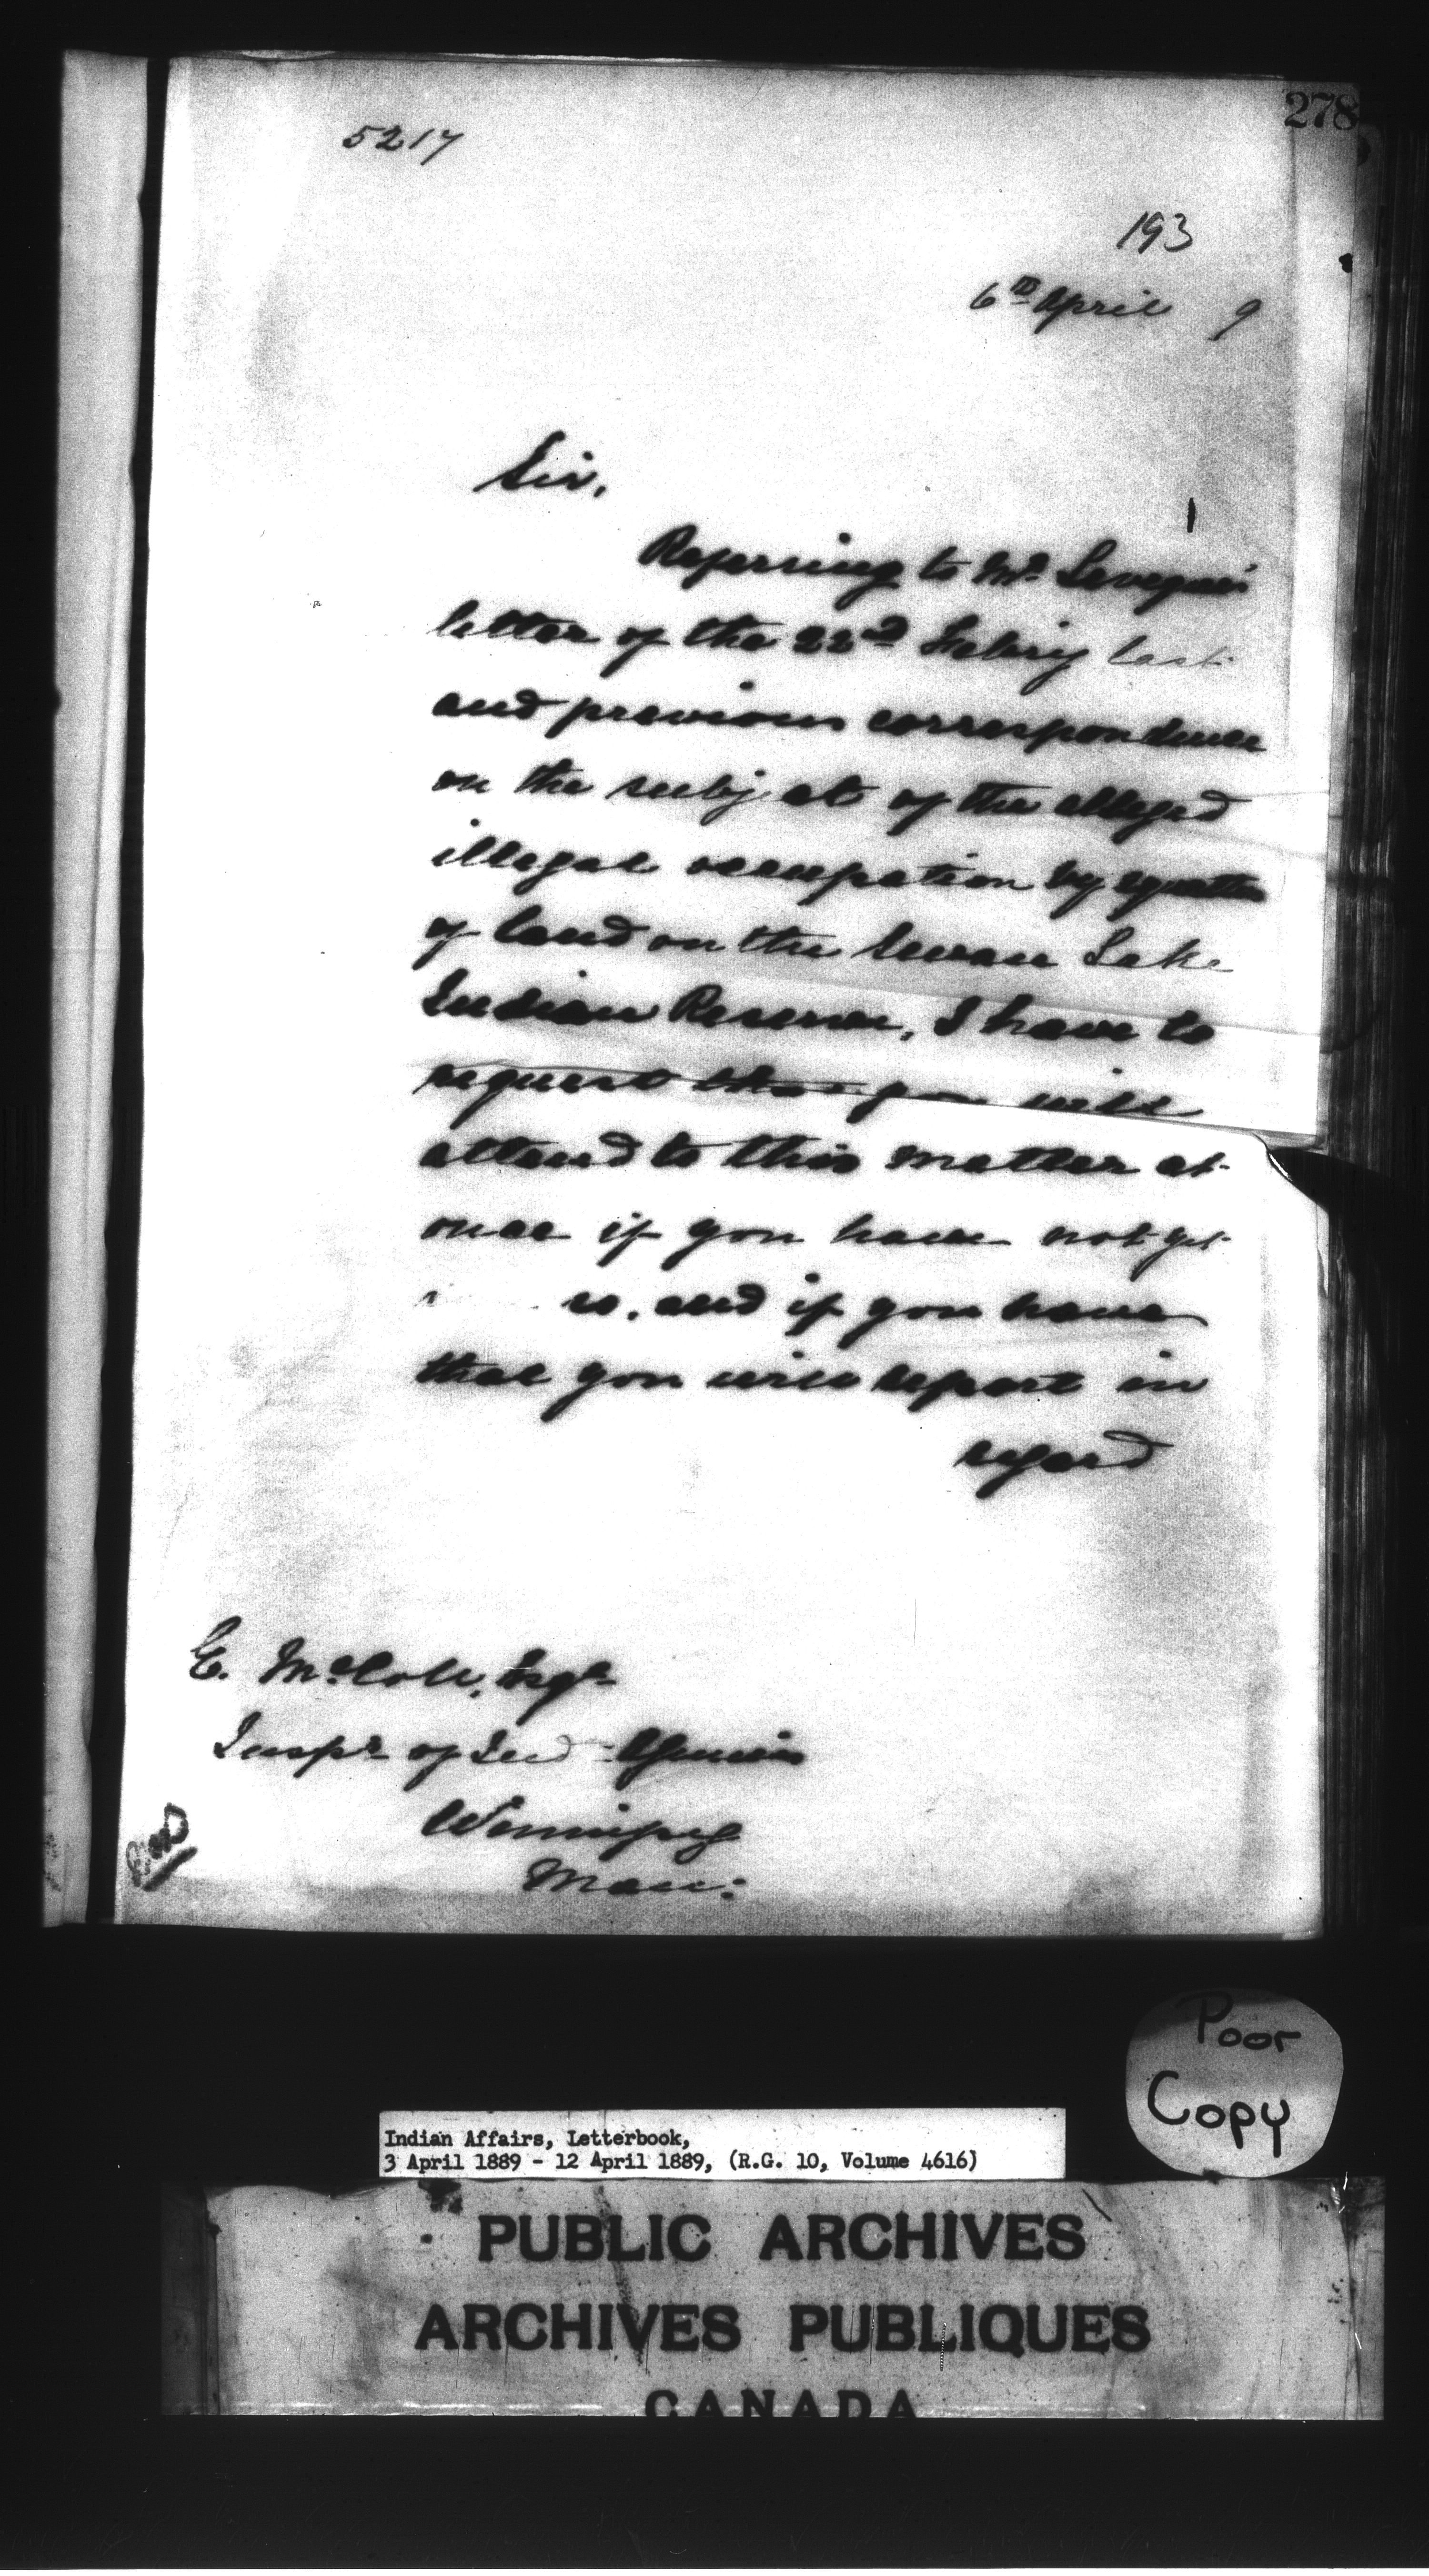 278
5217
193
6th April 9
Sir,
Referring to Mr.
letter of the 22nd Febry last
and previous correspondence
on the subject of the alleged
illegal occupation by squatters
of land on the Swan Lake
Indian Reserve, I have to
request that you will
attend to this matter at
once if you have not yet
so, and if you have
that you will report in
regard
E. McColl, Esqr
Inspr of Ind Agencies
Winnipeg
Man:
Poor
Copy
Indian Affairs, Letterbook,
3 April 1889 - 12 April 1889, (R.G. 10, Volume 4616)
PUBLIC ARCHIVES
ARCHIVES PUBLIQUES
CANADA